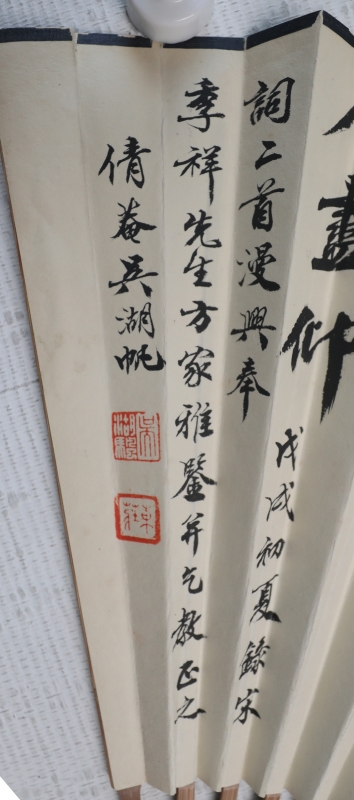 畫
戊戌初夏錄宋
詞二首漫興奉
季祥先生方家雅鑒并乞教正之
倩菴吳湖帆